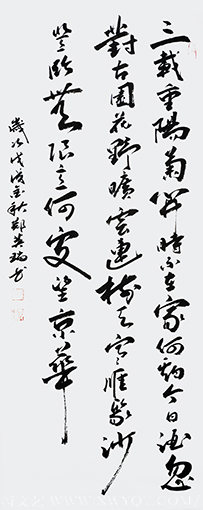 三载重陽菊開時不在家何期今日酒忽
對古園花野曠雲連樹天寒雁聚沙
登臨無限意何處望京華
歲次戊戌金秋鄭英瑞書